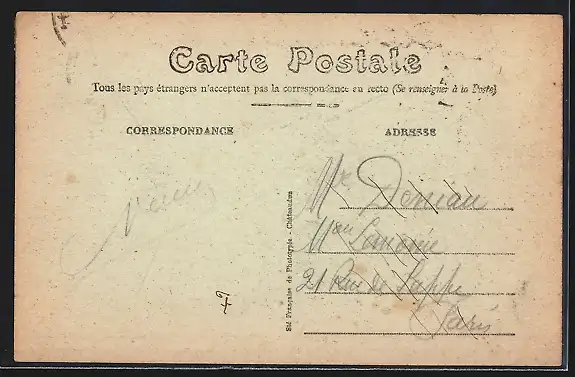 Carte Postale
Tous les pays étrangers n'acceptent pas la correspondance au recto (Se renseigner à la Poste)
CORRESPONDANCE
ADRESSE
Mr
21 Rue de Lappe
Paris
Sté Française de Phototypie - Châteaudun
47